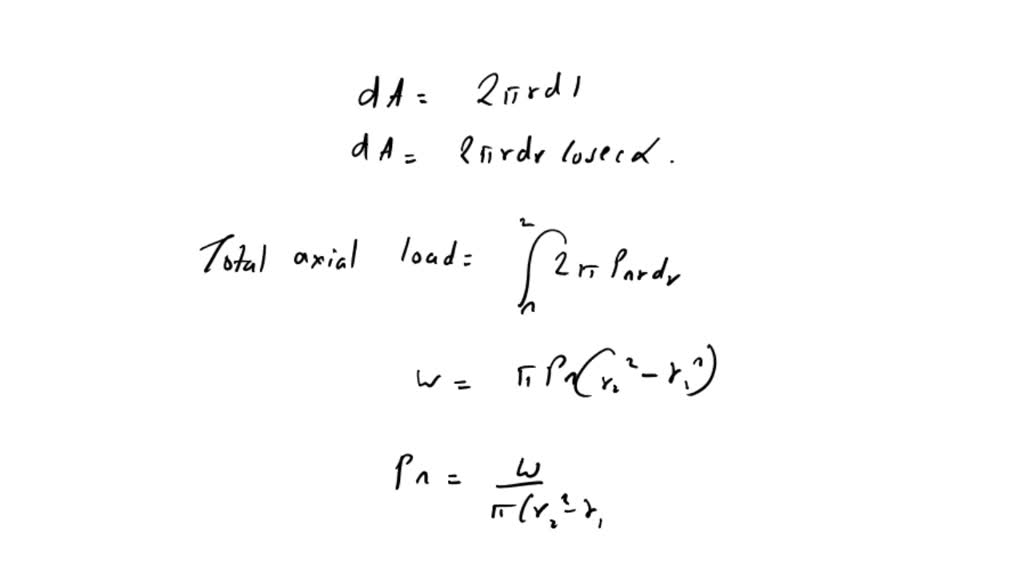 dA = 2πrdl
dA = 2πrdr cosecα.
Total axial load = ∫ 2π Pnrdr
W = πPn(r₂² - r₁²)
Pn = W / π(r₂² - r₁